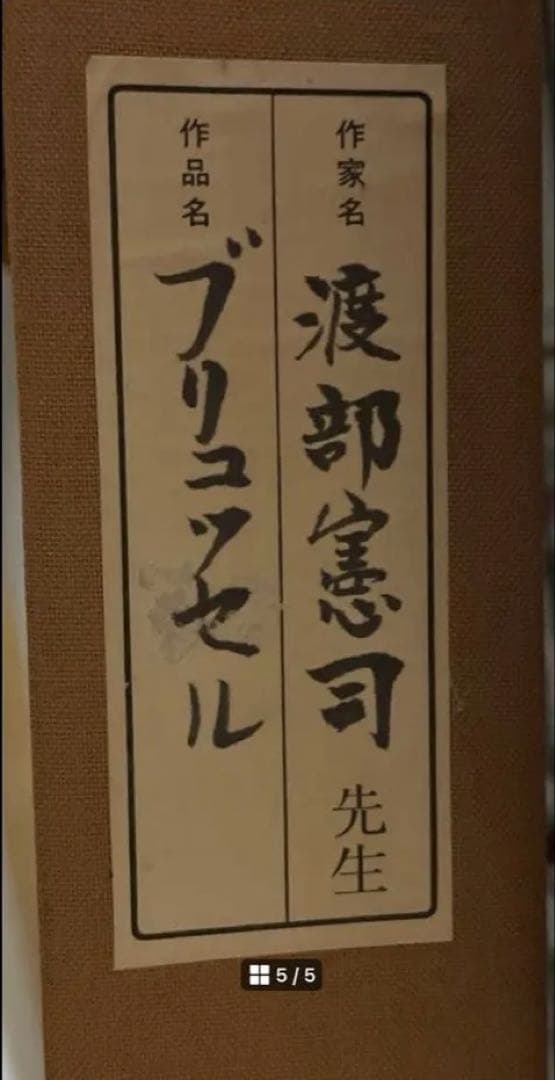 作家名 渡部憲司 先生
作品名 ブリュッセル
5/5